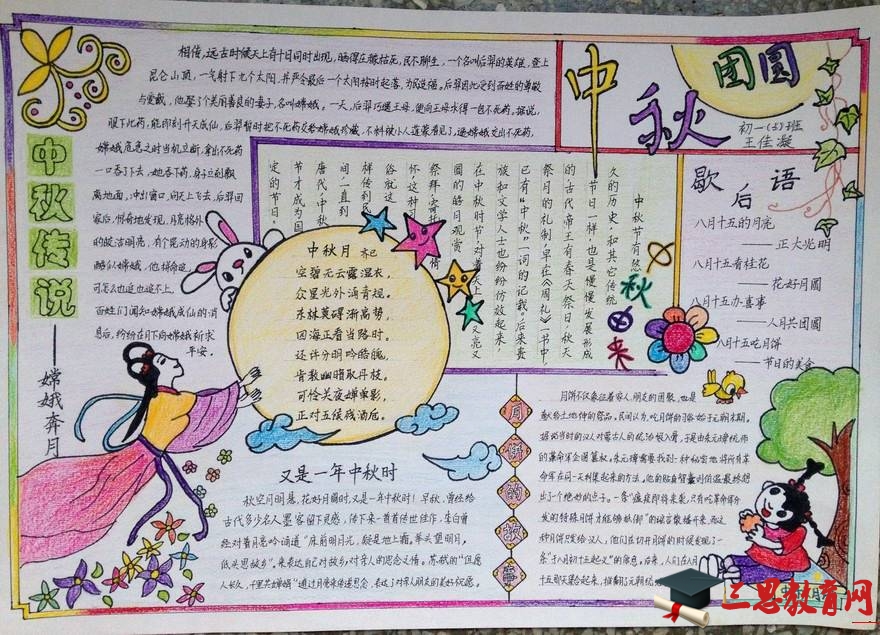 中
秋
团圆
初一(5)班
王佳凝
中秋传说
——嫦娥奔月
相传,远古时候天上有十日同时出现,晒得庄稼枯死,民不聊生,一个名叫后羿的英雄,登上
昆仑山顶,一气射下九个太阳,并严令最后一个太阳按时起落,为民造福。后羿因此受到百姓的尊敬
与爱戴,他娶了个美丽善良的妻子,名叫嫦娥。一天,后羿巧遇王母,便向王母求得一包不死药。据说,
服下此药,能即刻升天成仙,后羿暂时把不死药交给嫦娥珍藏,不料被小人蓬蒙看见了,逼嫦娥交出不死药,
嫦娥危急之时当机立断,拿出不死药
一口吞了下去,她吞下药,身子立刻飘
离地面,冲出窗口,向天上飞去。后羿回
家后,惊奇地发现,月亮格外
的皎洁明亮,有个晃动的身影
酷似嫦娥,他拼命追,
可怎么也追也追不上。
百姓们闻知嫦娥成仙的消
息后,纷纷在月下向嫦娥祈求
平安。
中秋由来
中秋节有悠
久的历史,和其它传统
节日一样,也是慢慢发展形成
的,古代帝王有春天祭日,秋天
祭月的礼制,早在《周礼》一书中,
已有“中秋”一词的记载。后来贵
族和文学人士也纷纷仿效起来,
在中秋时节,对着天上
圆的皓月观赏
祭拜,寄托
俗就
祥传到
间,一直到
唐代,中秋
节才成为固
定的节日。
中秋月 齐己
空碧无云露湿衣,
众星光外涌清规。
东林莫碍渐高势,
四海正看当路时。
还许分明吟皓魄,
肯教幽暗取丹枝。
可怜关夜婵娟影,
正对五侯残酒卮。
歇后语
八月十五的月亮
——正大光明
八月十五看桂花
——花好月圆
八月十五办喜事
——人月共团圆
八月十五吃月饼
——节日的美食
又是一年中秋时
秋空月明悬,花好月圆时,又是一年中秋时!早秋,曾经给
古代多少名人墨客留下灵感,传下来一首首传世佳作,李白曾
经对着月亮吟诵道“床前明月光,疑是地上霜,举头望明月,
低头思故乡”,来表达自己对故乡,对亲人的思念之情。苏轼的“但愿
人长久,千里共婵娟”通过月亮来传递思念,表达了对亲人朋友的美好祝愿。
月饼的故事
月饼不仅象征着家人,朋友的团聚,也是
献给土地神的祭品。民间认为,吃月饼的习俗始于元朝末期。
据说当时的汉人对蒙古人的统治恨入骨,于是由朱元璋统帅
的革命军企图篡权。朱元璋需要找到一种秘密地将所有革
命军在同一天利集起来的方法,他的贴身智囊刘伯温最终想
出了个绝妙的点子。一条“瘟疫即将来袭,只有吃革命军分
发的特殊月饼才能够妨御”的谣言散播开来,而这
种月饼只发给汉人,他们在切开月饼的时候发现了一
条“于八月初十五起义”的信息。后来,人们在八月
十五那天集合起来,推翻了元朝统
三思教育网